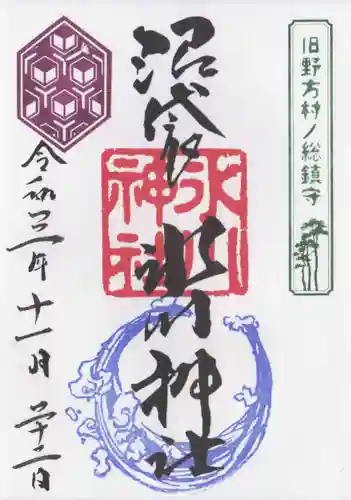 旧野方村ノ総鎮守
沼袋氷川神社
氷川神社
令和三年十一月二十二日